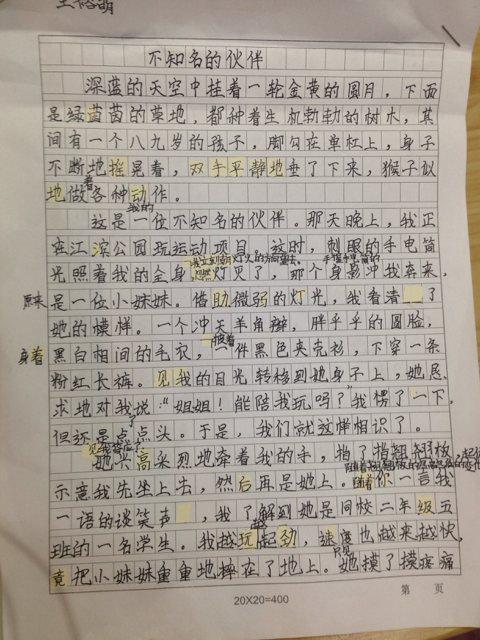 不知名的伙伴
深蓝的天空中挂着一轮金黄的圆月，下面
是绿茵茵的草地，都种着生机勃勃的树木，其
间有一个八九岁的孩子，脚勾在单杠上，身子
不断地摇晃着，双手平静地垂了下来，猴子似
地做着各种动作。
我的
这是一位不知名的伙伴。那天晚上，我正
在江滨公园玩运动项目。这时，刺眼的手电筒
光照着我的全身忽然灯灭了，那个身影冲我奔来，
原来是一位小妹妹。借助微弱的灯光，我看清了
她的模样。一个冲天羊角辫，胖乎乎的圆脸，
身着黑白相间的毛衣，披着一件黑色夹克衫，下穿一条
粉红长裤。见我的目光转移到她身子上，她恳
求地对我说：“姐姐！能陪我玩吗？”我愣了一下，
但还是点点头。于是，我们就这样相识了。
见我答应了
她兴高采烈地牵着我的手，拍了拍翘翘板
示意我先坐上去，然后再是她上。随着你一言我
一语的谈笑声，我了解到她是同校二年级五
班的一名学生。我越玩越起劲，速度也越来越快，
竟把小妹妹重重地摔在了地上。只见她摸了摸疼痛
第 页
20X20=400